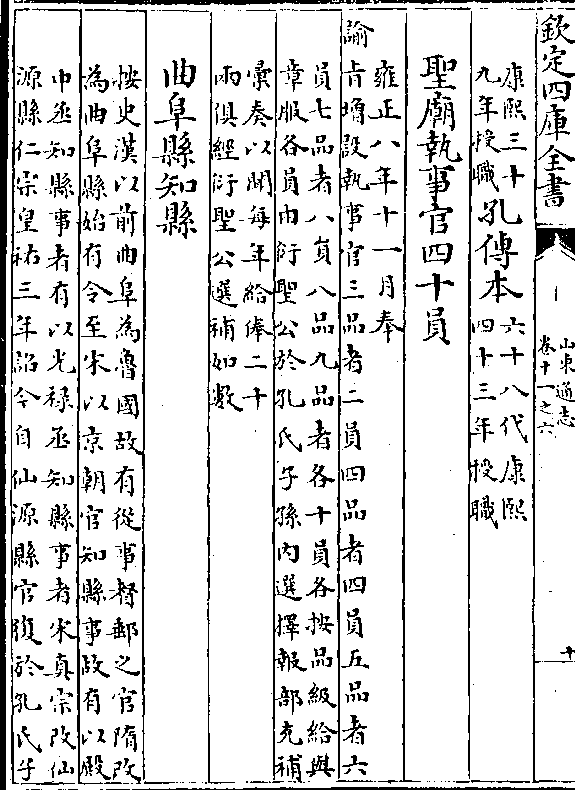 欽定四庫全書
山東通志
卷十一之六
十
康熙三十
九年授職
孔傳本
六十八代康熙
四十三年授職
聖廟執事官四十員
雍正八年十一月奉
諭旨增設執事官三品者二員四品者四員五品者六
員七品者八員八品九品者各十員各按品級給與
章服各員由衍聖公於孔氏子孫內選擇報部充補
彙奏以聞每年給俸二十
兩俱經衍聖公選補如數
曲阜縣知縣
按史漢以前曲阜為魯國故有從事督郵之官隋改
為曲阜縣始有令至宋以京朝官知縣事故有以殿
中丞知縣事者有以光祿丞知縣事者宋真宗改仙
源縣仁宗皇祐三年詔今自仙源縣官復於孔氏子